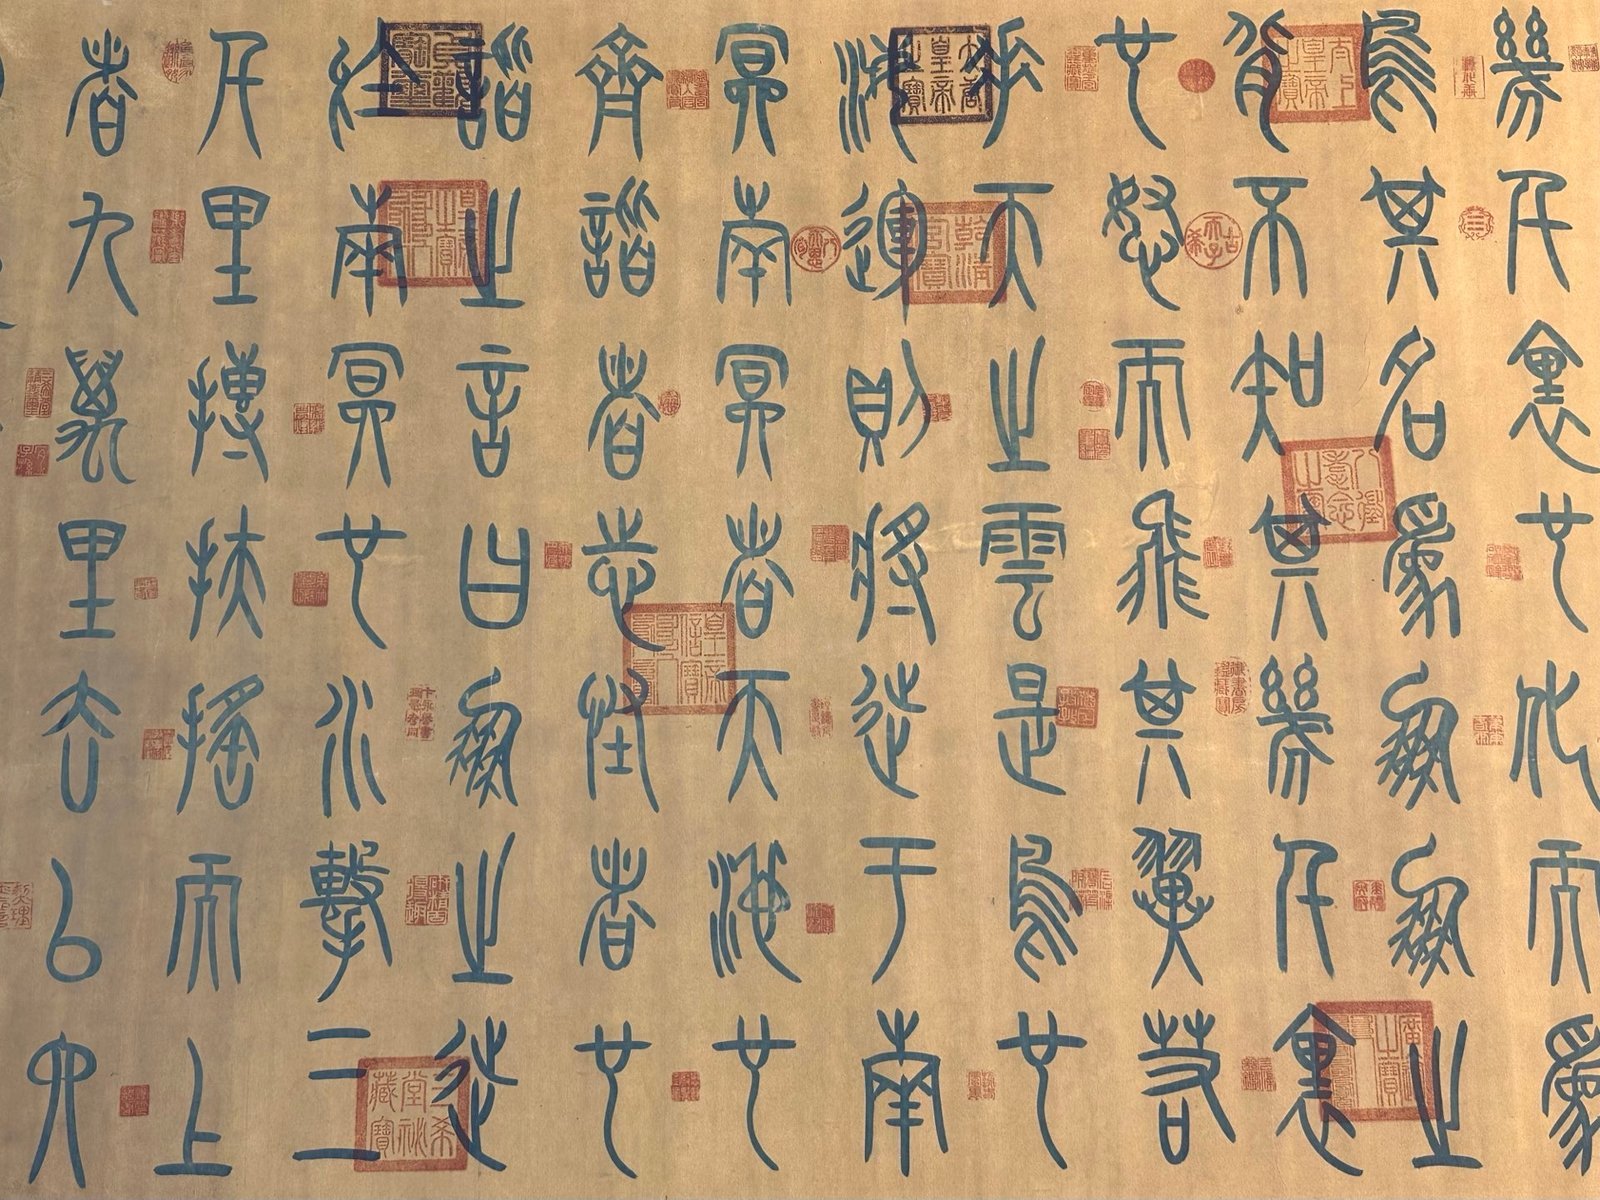 幾千里也化而為
鳥其名為鵬鵬之
背不知其幾千里
也怒而飛其翼若
垂天之雲是鳥也
海運則將徙于南
冥南冥者天池也
齊諧者志怪者也
諧之言曰鵬之徙
於南冥也水擊三
千里摶扶搖而上
者九萬里去以六
太上皇帝之寶
古希天子
八徵耄念之寶